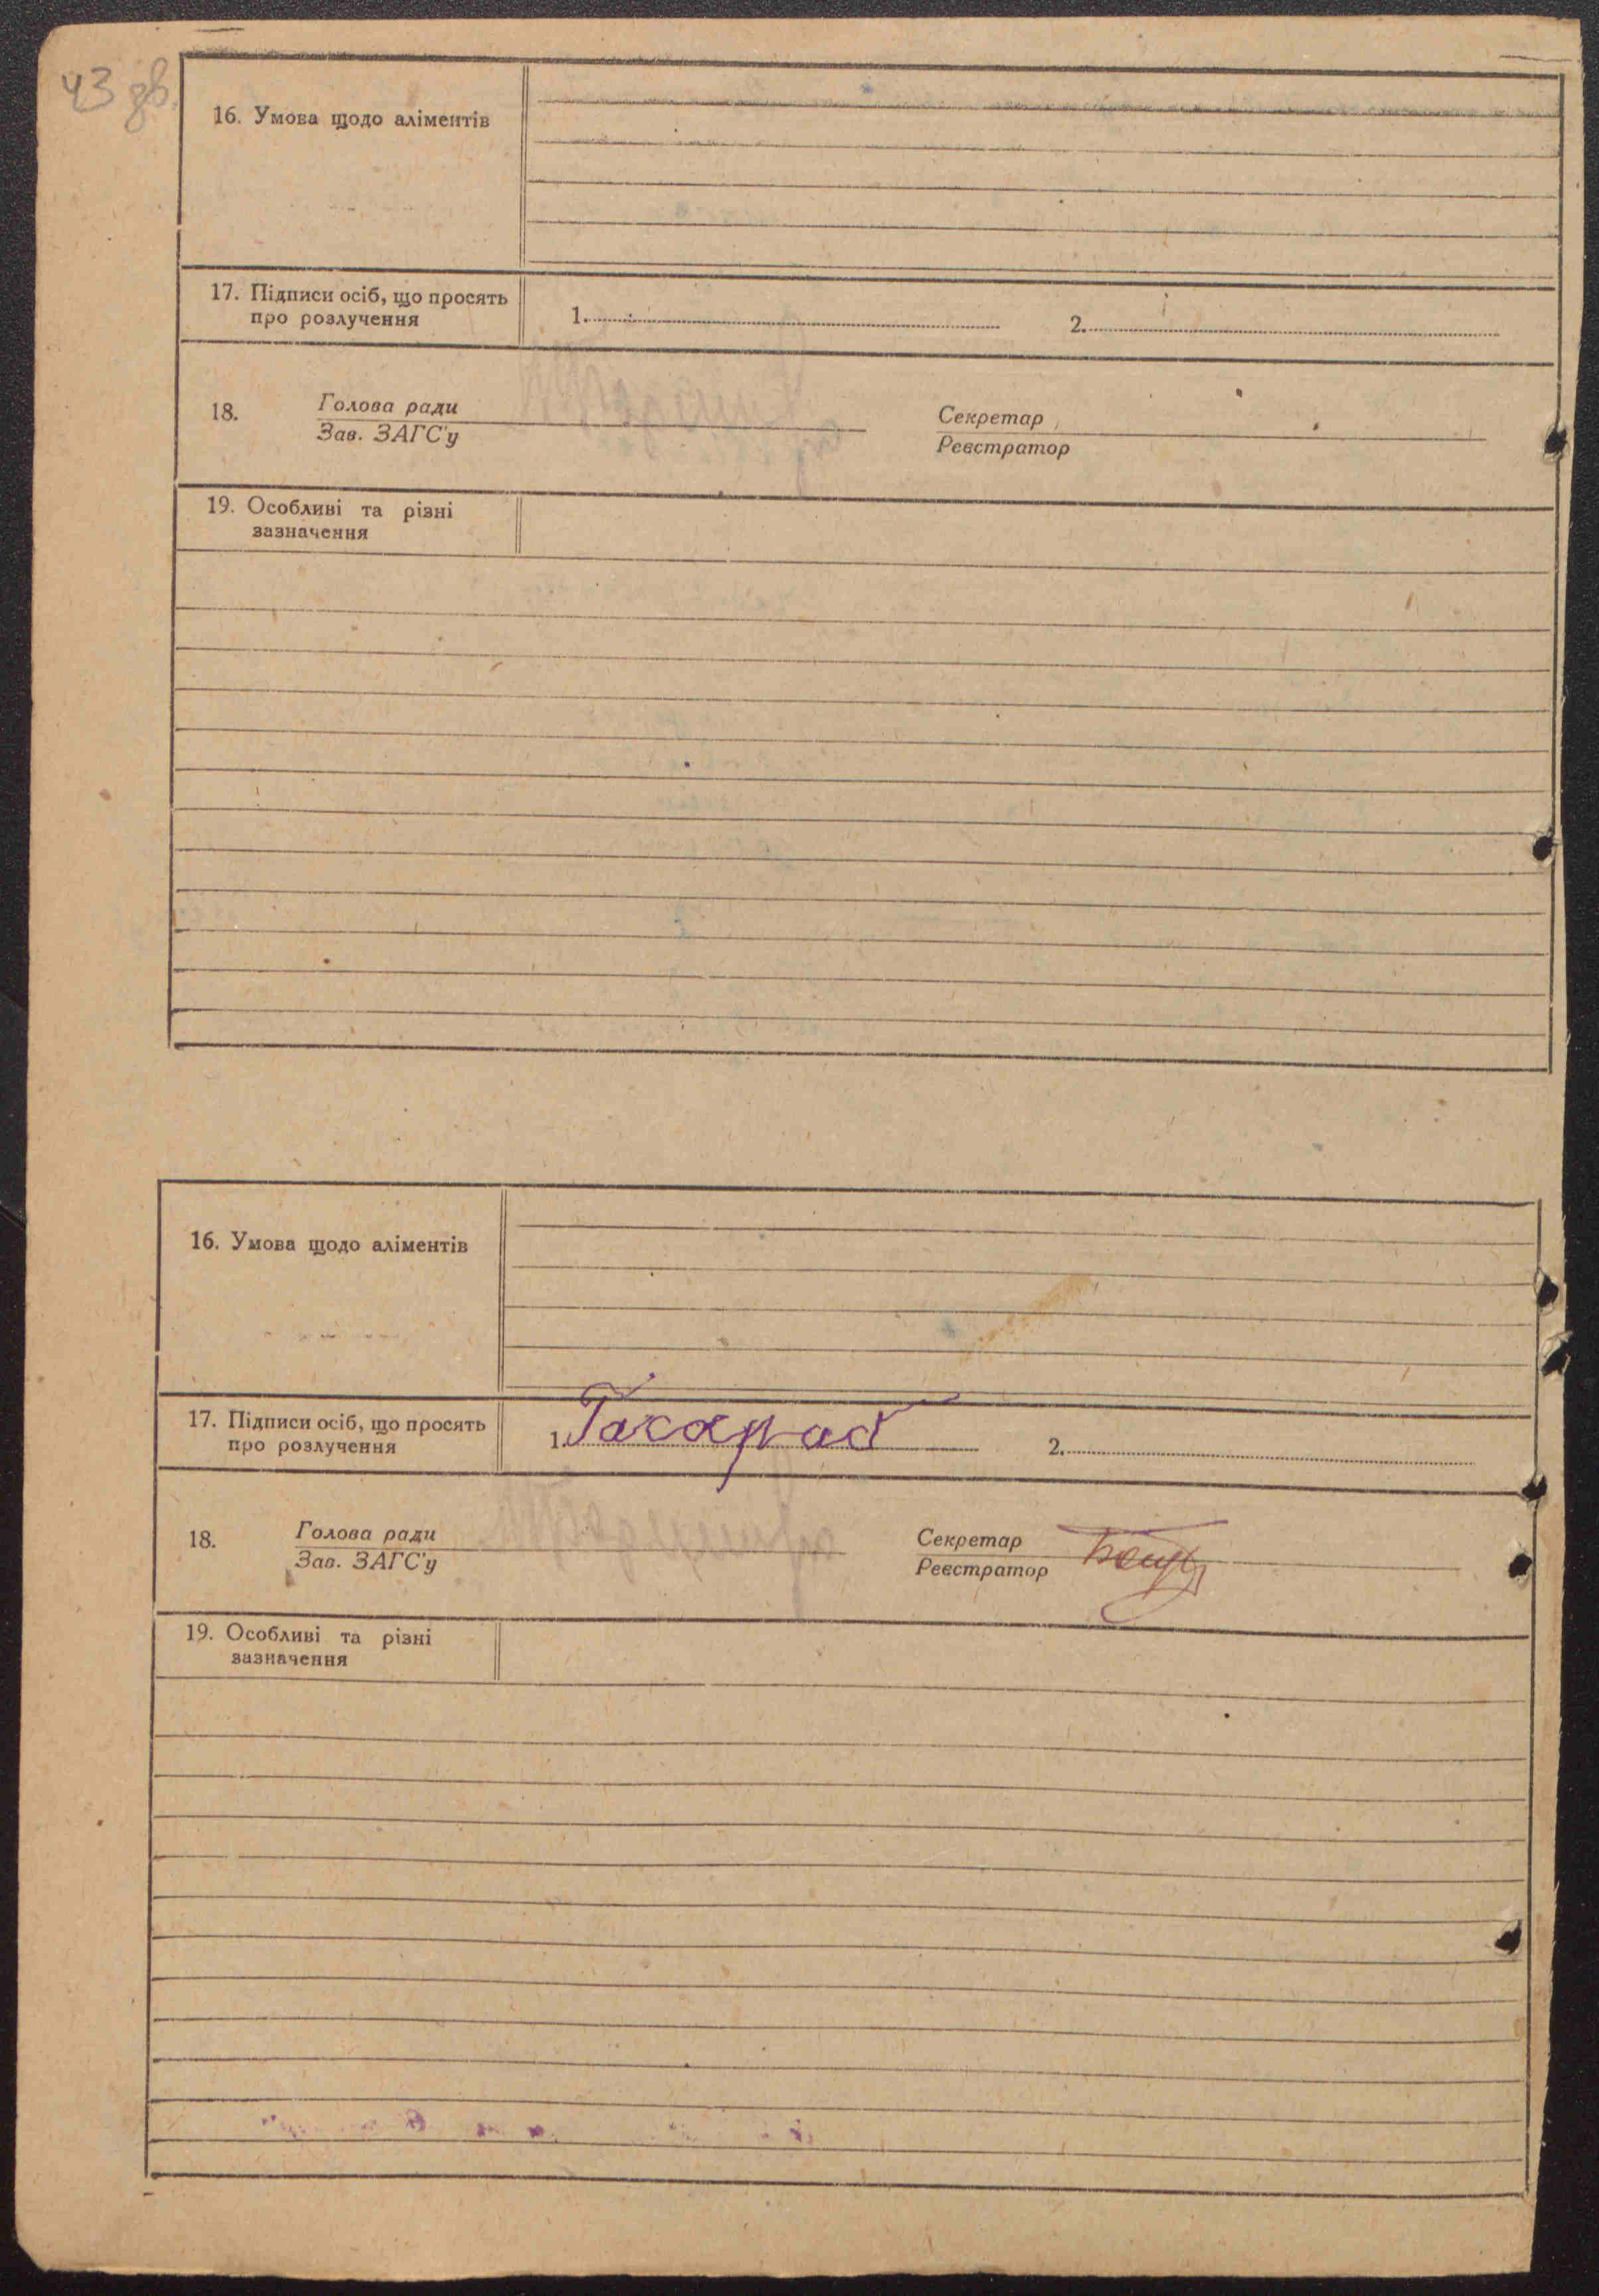 43 зв.
16. Умова щодо аліментів
17. Підписи осіб, що просять
про розлучення
1.
2.
18.
Голова ради
Зав. ЗАГС'у
Секретар
Реєстратор
19. Особливі та різні
зазначення
16. Умова щодо аліментів
17. Підписи осіб, що просять
про розлучення
1.
2.
18.
Голова ради
Зав. ЗАГС'у
Секретар
Реєстратор
19. Особливі та різні
зазначення